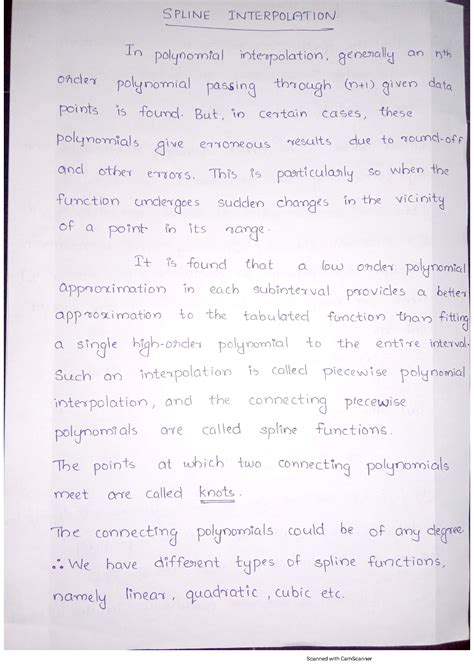 SPLINE INTERPOLATION
In polynomial interpolation, generally an nth
order polynomial passing through (n+1) given data
points is found. But, in certain cases, these
polynomials give erroneous results due to round-off
and other errors. This is particularly so when the
function undergoes sudden changes in the vicinity
of a point in its range.
It is found that a low order polynomial
approximation in each subinterval provides a better
approximation to the tabulated function than fitting
a single high-order polynomial to the entire interval.
Such an interpolation is called piecewise polynomial
interpolation, and the connecting piecewise
polynomials are called spline functions.
The points at which two connecting polynomials
meet are called knots.
The connecting polynomials could be of any degree.
∴ We have different types of spline functions,
namely linear, quadratic, cubic etc.
Scanned with CamScanner